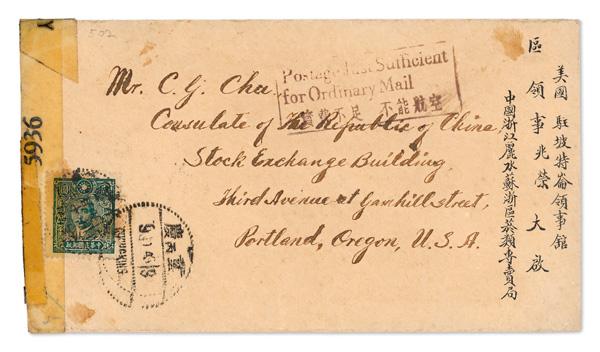 502
5936
Postage Just Sufficient
for Ordinary Mail
資費不足 不能航空
Mr. C. G. Chu.
Consulate of The Republic of China,
Stock Exchange Building,
Third Avenue at Yamhill street,
Portland, Oregon, U.S.A.
美國 駐坡特崙領事館
區領事兆榮 大啟
中國浙江麗水蘇浙區菸類專賣局